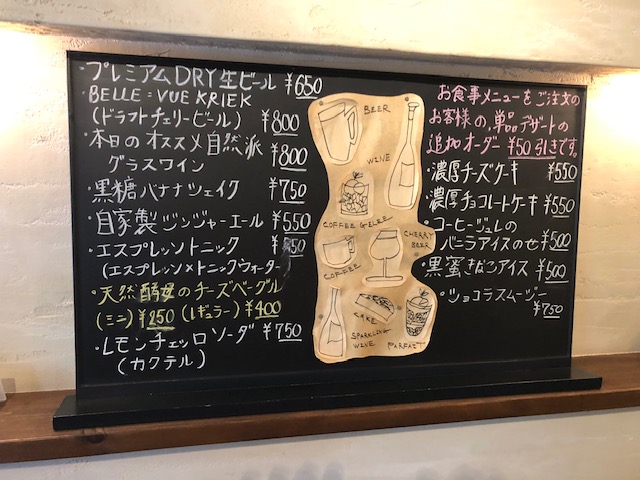 ・プレミアムDRY生ビール ¥650
BELLE-VUE KRIEK
(ドラフトチェリービール) ¥800
・本日のオススメ自然派 ¥800
グラスワイン
・黒糖バナナシェイク ¥750
・自家製ジンジャーエール ¥550
・エスプレッソトニック
(エスプレッソ×トニックウォーター
天然酵母のチーズベーグル
(ミニ) ¥250 (レギュラー) ¥400
・レモンチェッロソーダ ¥750
(カクテル)
BEER
WINE
COFFEE GELEE
CHERRY
BEER
COFFEE
CAKE
SPARKLING
WINE
PARFAIT
お食事メニューをご注文の
お客様の、単品デザートの
追加オーダー ¥50引きです。
・濃厚チーズケーキ ¥550
・濃厚チョコレートケーキ ¥550
・コーヒージュレの
バニラアイスのせ ¥500
・黒蜜きなこアイス ¥500
・ショコラスムージー
¥750